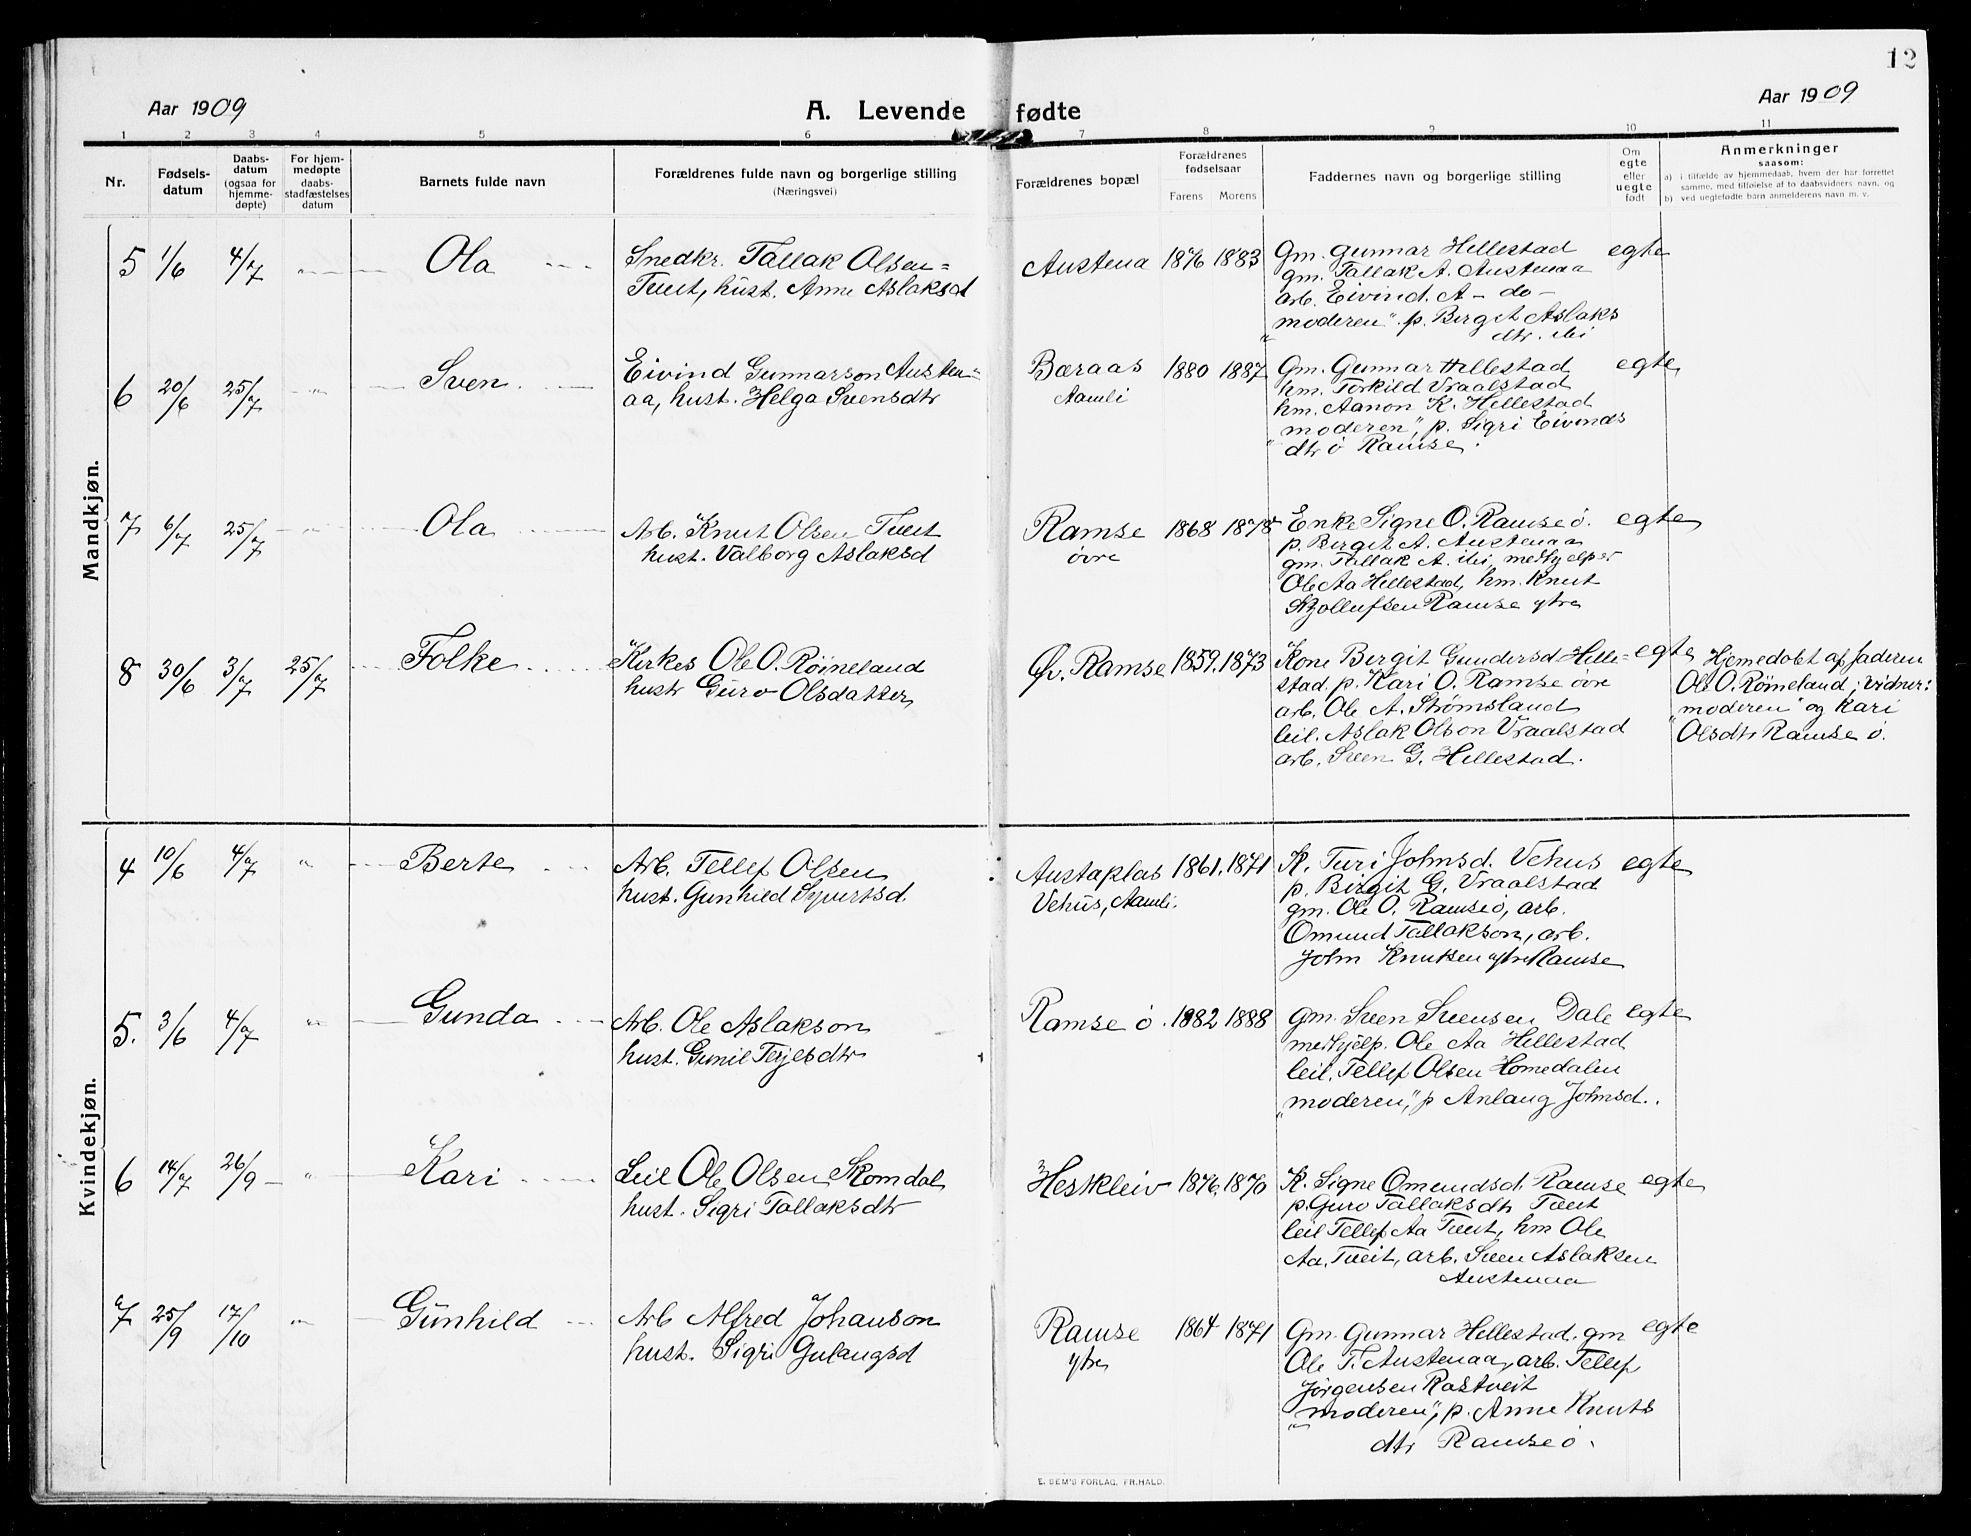 12
Aar 1909
A. Levende fødte
Aar 1909
1 2 3 4 5 6 7 8 9 10 11
Nr.
Fødsels-
datum
Daabs-
datum
(ogsaa for
hjemme-
døpte)
For hjem-
medøpte
daabs-
stadfæstelses
datum
Barnets fulde navn
Forældrenes fulde navn og borgerlige stilling
(Næringsvei)
Forældrenes bopæl
Forældrenes
fødselsaar
Farens Morens
Faddernes navn og borgerlige stilling
Om
egte
eller
uegte
født
Anmerkninger
saasom:
a) i tilfælde av hjemmedaab, hvem der har forrettet
samme, med tilføielse af to daabsvidners navn, og
b) ved uegtefødte barn anmelderens navn m. v.
Mandkjøn.
5 1/6 4/7 " Ola
Snedkr. Tallak Olsen=
Tveit, hust. Anne Aslaksd
Austena 1876 1883
Gm. Gunnar Hellestad
gm. Tallak A. Austenaa
arb. Eivind. A - do -
"moderen" p. Birgit Aslaks
dtr. ibi
egte
6 20/6 25/7 " Sven
Eivind Gunnarson Austen=
aa, hust. Helga Svensdtr
Bæraas
Aamli
1880 1887
Gm. Gunnar Hellestad
hm. Torkild Vraalstad
hm. Aanon K. Hellestad
"moderen", p. Sigri Eivinds
dtr ø Ramse.
egte
7 6/7 25/7 " Ola
Arb. Knut Olsen Tveit
hust. Valborg Aslaksd
Ramse
øvre
1868 1878
Enke Signe O. Ramse ø.
p. Birgit A. Austenaa
gm. Tallak A. ibi, medhjelper
Ole Aa Hellestad, hm. Knut
Ramse ytre
egte
8 30/6 3/7 25/7 Folke
Kirkes Ole O. Røineland
hustr Guro Olsdatter
Øv. Ramse 1859. 1873
Kone Birgit Gundersd Helle=
stad. p. Kari O. Ramse øvre
arb. Ole A. Strømsland
leil. Aslak Olson Vraalstad
arb. Sven G. Hellestad.
egte
Hjemedøbt af faderen
Ole O. Røineland; vidner:
"moderen" og Kari
Olsdtr Ramse ø.
Kvindekjøn.
4 10/6 4/7 " Berte
Arb. Tellef Olsen
hust. Gunhild Syvertsd.
Austaplas
Vehus, Aamli.
1861. 1871
K. Turi Johnsd. Vehus
p. Birgit G. Vraalstad
gm. Ole O. Ramse ø, arb.
Omund Tallakson, arb.
John Knutsen ytre Ramse
egte
5. 3/6 4/7 " Gunda
Arb. Ole Aslakson
hust. Gunil Terjesdtr
Ramse ø. 1882 1888
gm. Sven Svensen Dale
medhjelp. Ole Aa Hellestad
leil. Tellef Olsen Homedalen
"moderen", p Anlaug Johnsd..
egte
6 14/7 26/9 " Kari
Leil Ole Olsen Skomdal
hust. Sigri Tallaksdtr
Hestkleiv 1876. 1870
K. Signe Omundsd. Ramse
p. Guro Tallaksdtr Tveit
leil Tellef Aa Tveit, hm Ole
Aa. Tveit, arb. Sven Aslaksen
Austenaa
egte
7 25/9 17/10 " Gunhild
Arb Alfred Johanson
hust. Sigri Gulaugsd
Ramse
ytre
1864 1871
Gm. Gunnar Hellestad. gm
Ole T. Austenaa, arb. Tellef
Jørgensen Rostveit
"moderen", p. Anne Knuts
dtr Ramse ø.
egte
E. SEM'S FORLAG, FR.HALD.